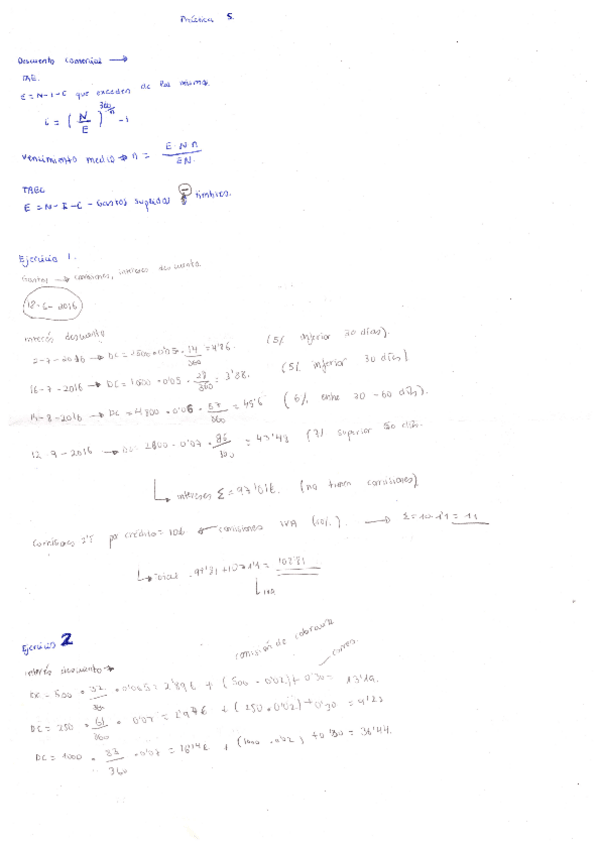 Práctica 5.
Descuento comercial →
TAE.
E = N - I - C que exceden de
i = (N/E)^360/n - 1
vencimiento medio → n = E N n / E N.
TAEC
E = N - I - C - Gastos suplidos - timbres.
Ejercicio 1.
Gastos → comisiones, intereses descuento
12-6-2016
interés descuento
2-7-2016 → DC = 2500 · 0'05 · 14/360 = 4'86. (5% inferior 30 días).
16-7-2016 → DC = 1000 · 0'05 · 28/360 = 3'88. (5% inferior 30 días)
14-8-2016 → DC = 4800 · 0'06 · 57/360 = 45'6 (6% entre 30-60 días).
12-9-2016 → DC = 2800 · 0'07 · 86/360 = 47'43 (7% superior 60 días.
intereses Σ = 97'81€. (no tienen comisiones)
por crédito = 10€ comisiones IVA (10%). → Σ = 10 · 1'1 = 11
Total 97'81 + 10 · 1'1 = 108'81
IVA
Ejercicio 2
comisión de cobranza
correo.
interés descuento →
DC = 500 · 37/360 · 0'065 = 2'89€ + (500 · 0'02) + 0'30 = 13'19.
DC = 250 · 61/360 · 0'07 = 2'97€ + (250 · 0'02) + 0'30 =
DC = 1000 · 83/360 · 0'07 = 16'14€ + (1000 · 0'02) + 0'30 = 36'44.